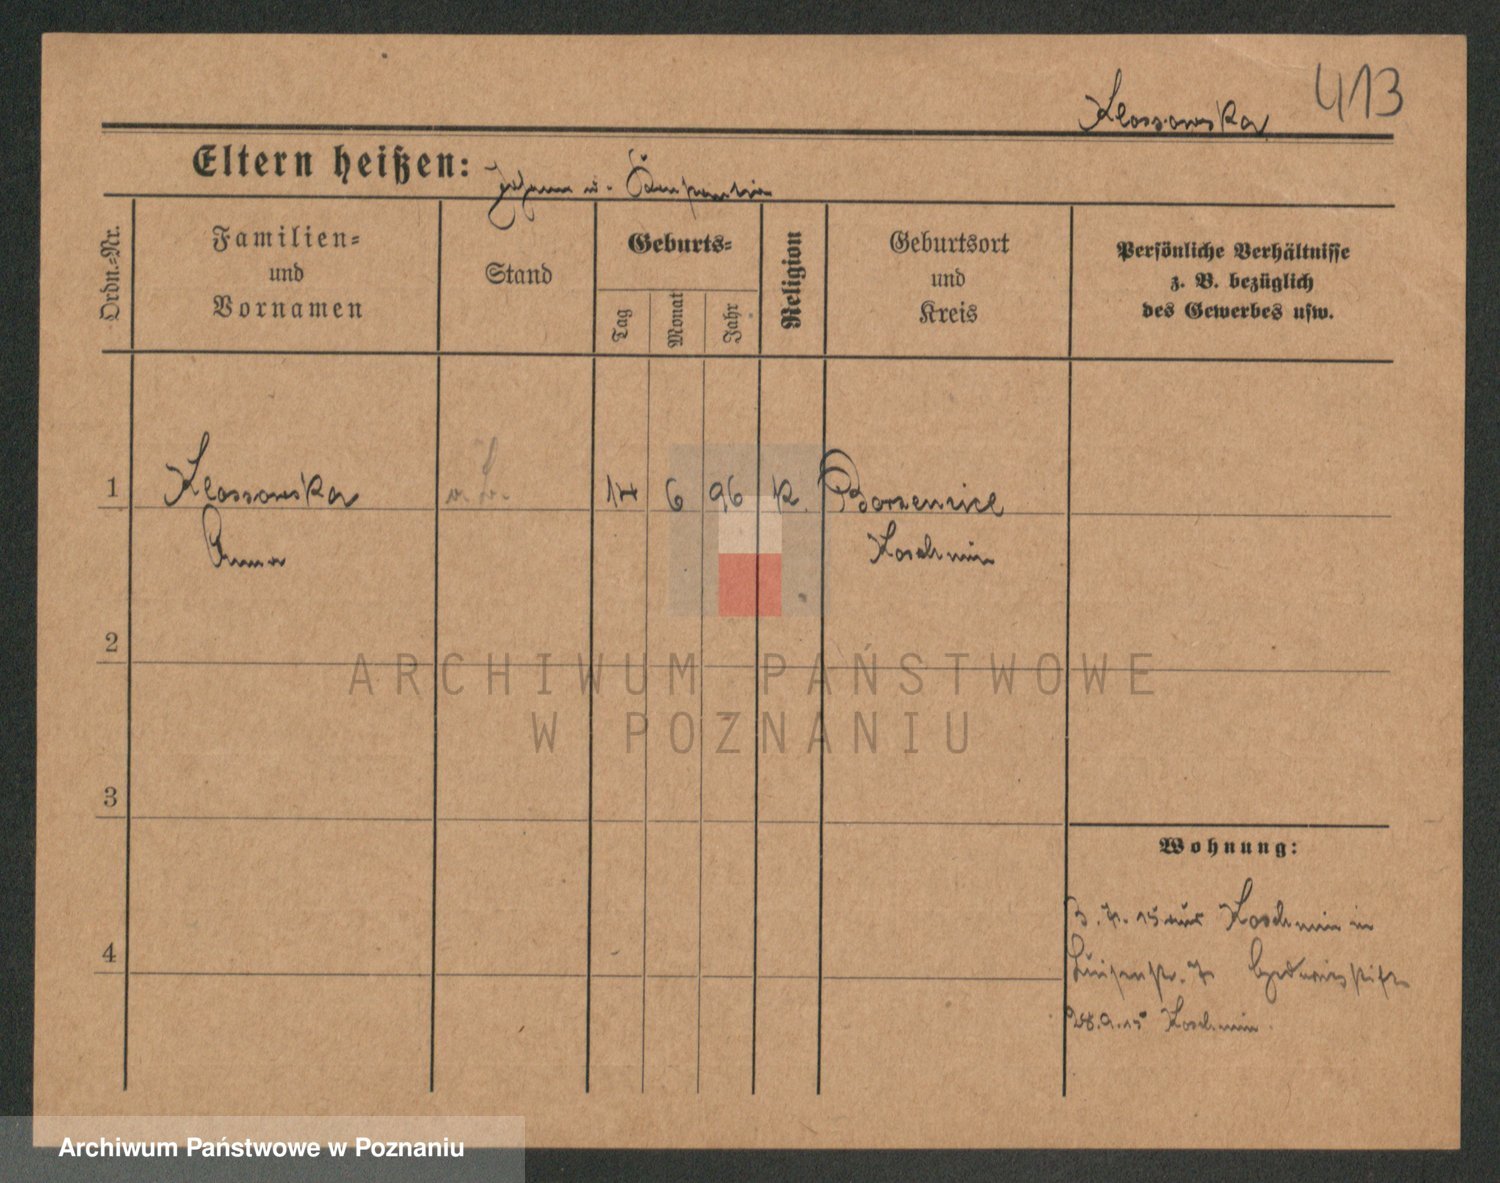 Klossowska 413
Eltern heißen: Johann u.
Ordn.-Nr.
Familien-
und
Vornamen
Stand
Geburts-
Tag
Monat
Jahr
Religion
Geburtsort
und
Kreis
Persönliche Verhältnisse
z. B. bezüglich
des Gewerbes usw.
1 Klossowska 17 6 96 k. Borzencice
Anna Koschmin
2
ARCHIWUM PAŃSTWOWE
W POZNANIU
3
Wohnung:
3. 7. 15 aus Koschmin in
4
Luisenstr. 7 Hedwigstift
28.9.15 Koschmin.
Archiwum Państwowe w Poznaniu